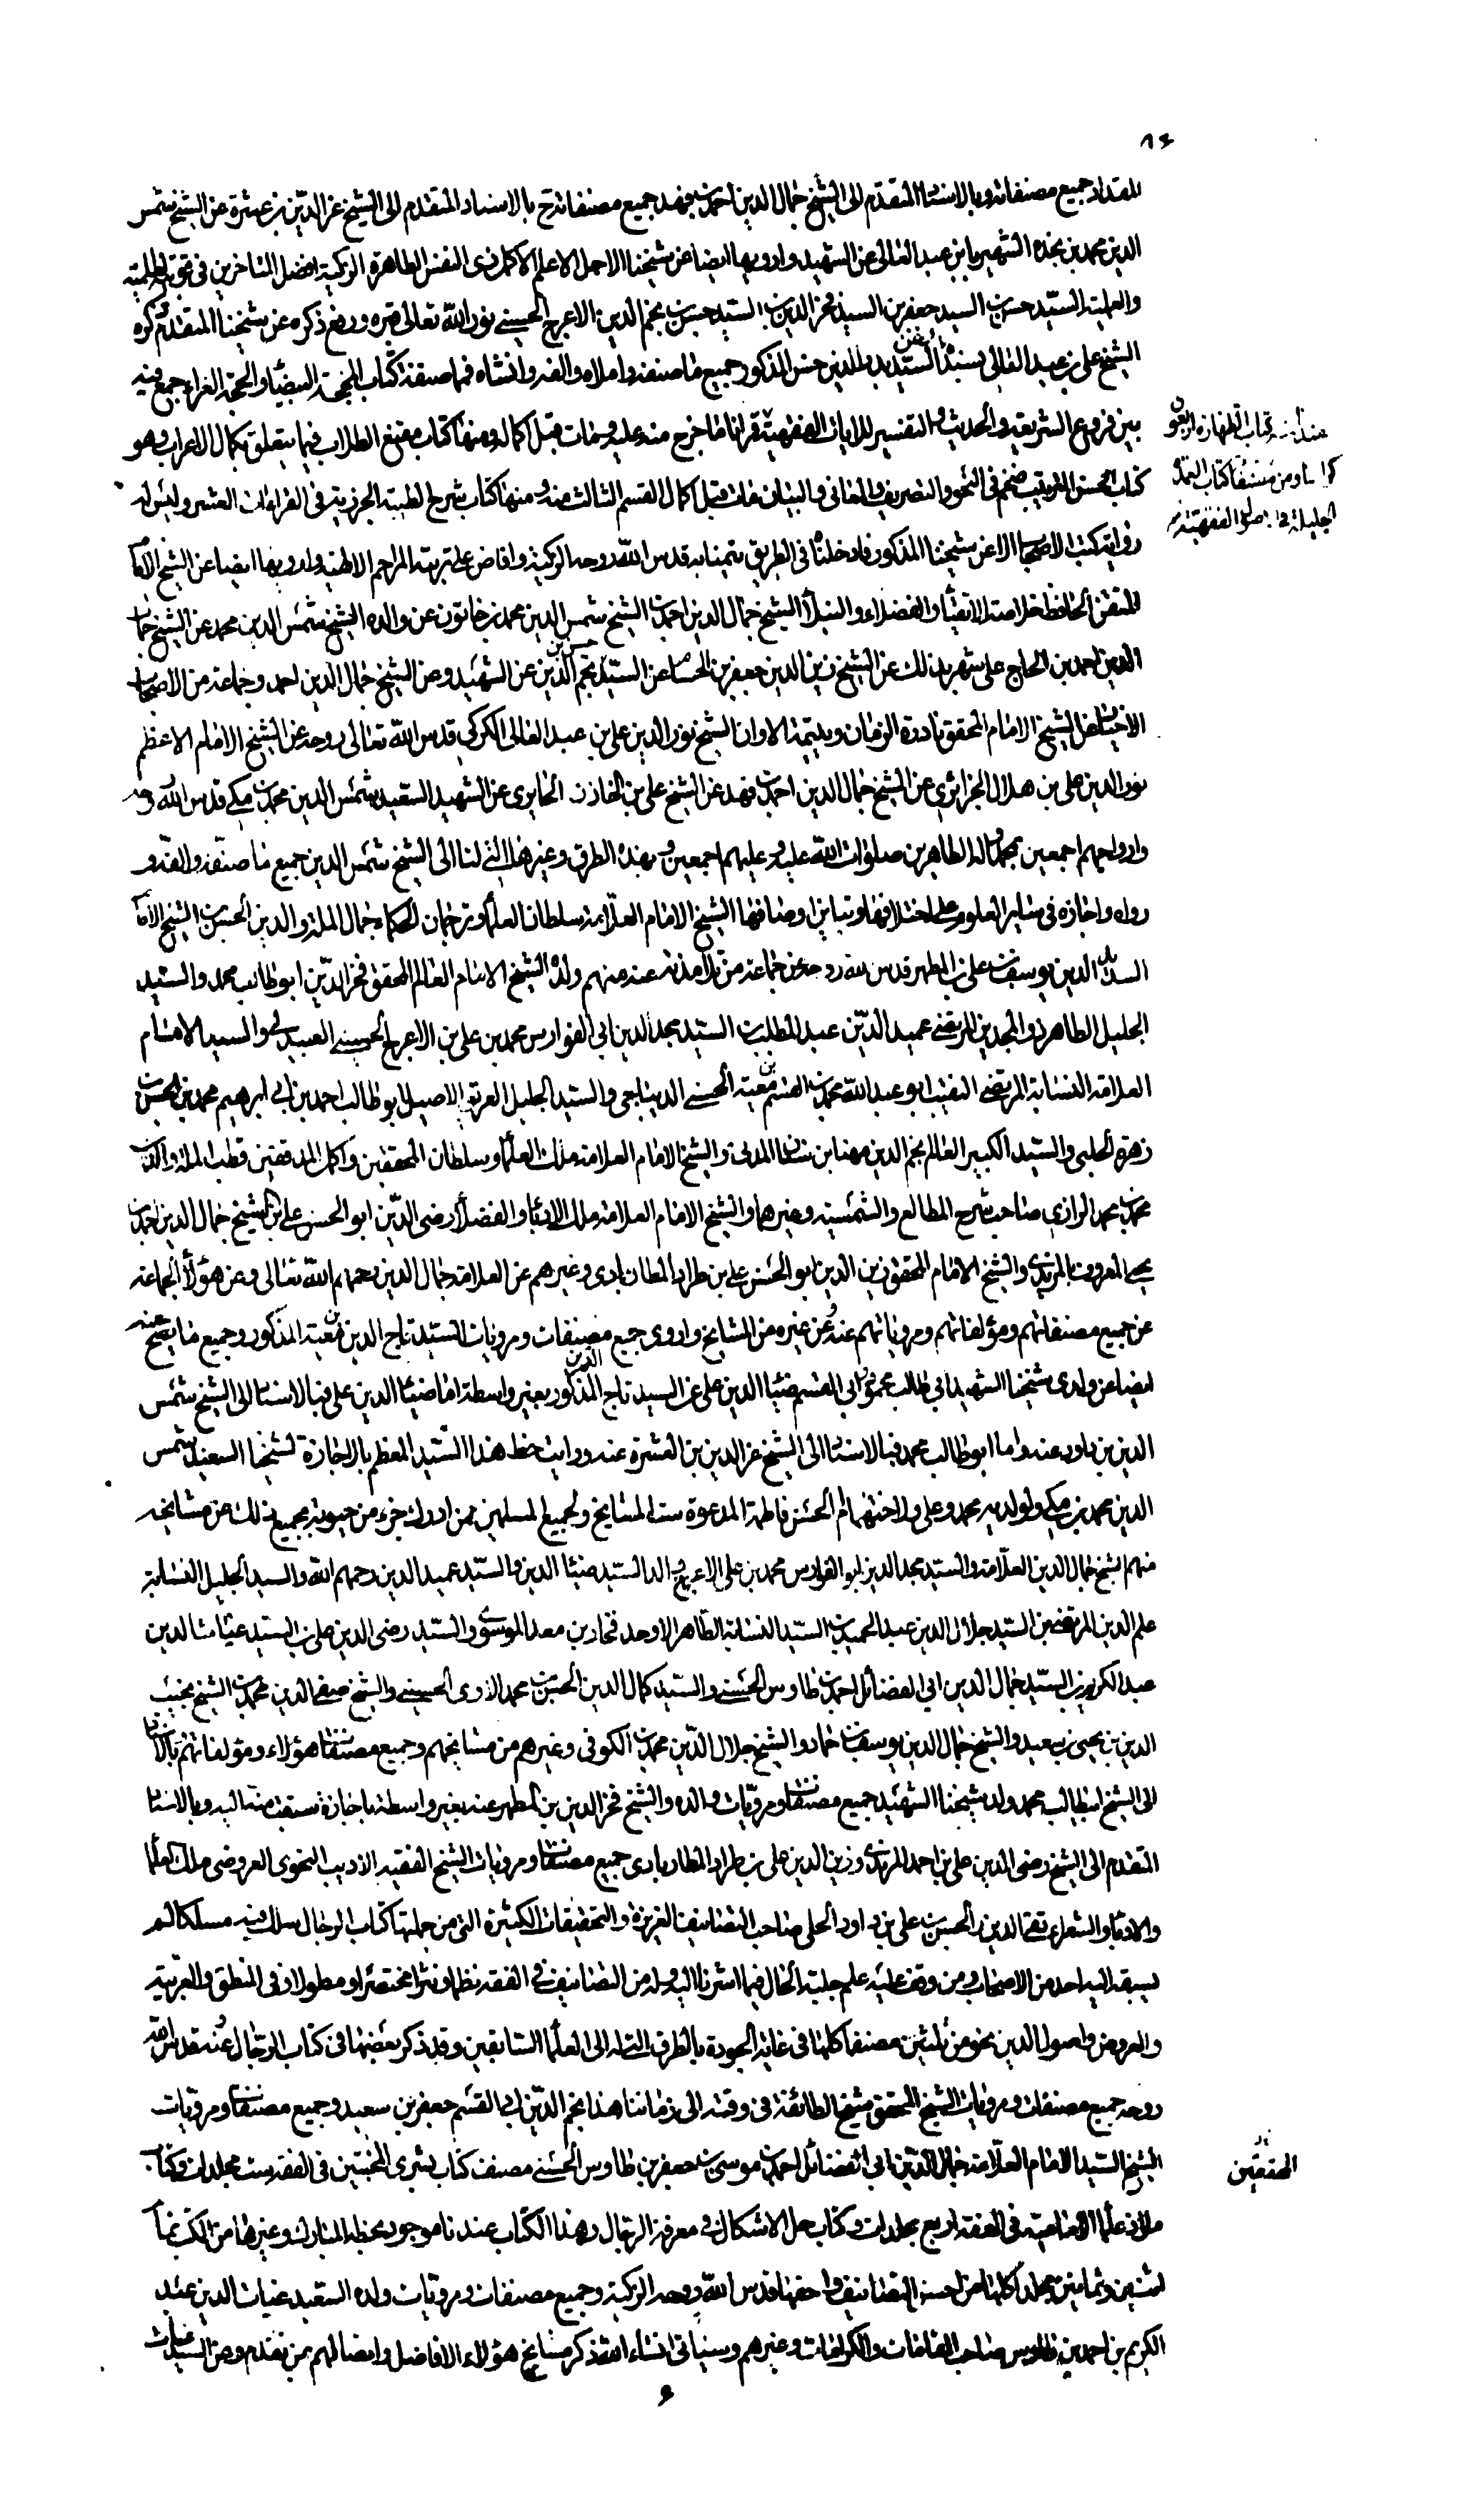 ٨٤
المقداد جميع مصنفاته وبالاسناد المتقدم الى الشيخ جمال الدين احمد بن فهد جميع مصنفاته ح بالاسناد المتقدم الى الشيخ عز الدين بن عشرة عن الشيخ شمس
الدين محمد بن نجدة الشهير بابن عبد العالى عن الشهيد وارويها ايضا عن شيخنا الاجل الاعلم الاكمل ذى النفس الطاهرة الزكية افضل المتاخرين فى قوتيه العلمية
والعملية السيد حسن بن السيد جعفر بن السيد فخر الدين بن السيد حسن بن نجم الدين الاعرج الحسينى نور الله تعالى قبره ورفع ذكره عن شيخنا المتقدم ذكره
الشيخ على بن عبد العالى بسنده وعن السيد بدر الدين حسن المذكور جميع ما صنفه واملاه والفه وانشاه فمما صنفه كتاب المحجة البيضاء والحجة الغراء جمع فيه
بين فروع الشريعة والحديث والتفسير للايات الفقهية قرانا ما خرج منه عليه ومات قبل اكماله ومنها كتاب مقنع الطلاب فيما يتعلق بكلام الاعراب وهو
كتاب حسن الترتيب ضخم فى النحو والتصريف والمعانى والبيان مات قبل اكمال القسم الثالث منه ومنها كتاب شرح الطيبة الجزرية فى القراءات العشر وليس له
رواية كتب الاصحاب الا عن شيخنا المذكور فادخلناه فى الطريق تيمنا به قدس الله روحه الزكية وافاض على تربته المراحم الالهية وارويها ايضا عن الشيخ الامام
المتقن الحافظ خلاصة الاتقياء والفضلاء والنبلاء الشيخ جمال الدين احمد بن الشيخ شمس الدين محمد بن خاتون عن والده الشيخ شمس الدين محمد عن الشيخ جمال
الدين احمد بن الحاج على شهر بذلك عن الشيخ زين الدين جعفر بن الحسام عن السيد حسن بن نجم الدين عن الشهيد وعن الشيخ جمال الدين احمد وجماعة من الاصحاب
الاخيار عن الشيخ الامام المحقق نادرة الزمان ويتيمة الاوان الشيخ نور الدين على بن عبد العالى الكركى قدس الله تعالى روحه عن الشيخ الامام الاعظم
نور الدين على بن هلال الجزائرى عن الشيخ جمال الدين احمد بن فهد عن الشيخ على بن الخازن الحايرى عن الشهيد السعيد شمس الدين محمد بن مكى قدس الله روحه
وارواحهم اجمعين بمحمد واله الطاهرين صلوات الله عليه وعليهم اجمعين وبهذه الطرق وغيرها التى لنا الى الشيخ شمس الدين جميع ما صنفه والفه و
رواه واجازه فى ساير العلوم على اختلافها وتباينها وصنافها الشيخ الامام العلامة سلطان العلماء وترجمان الحكماء جمال الملة والدين الحسن بن الشيخ الامام
سديد الدين يوسف بن على بن المطهر قدس الله روحه عن جماعة من تلامذته عنه منهم ولده الشيخ الامام العالم المحقق فخر الدين ابو طالب محمد والسيد
الجليل الطاهر ذو المجدين المرتضى عميد الدين عبد المطلب بن السيد مجد الدين ابى الفوارس محمد بن على بن الاعرج الحسينى العبيدلى والسيد الامام
العلامة النسابة المرتضى النقيب ابو عبد الله محمد بن القسم بن معية الحسنى الديباجى والسيد الجليل العريق الاصيل ابو طالب احمد بن ابى ابرهيم محمد بن الحسن بن
زهرة الحلبى والسيد الكبير العالم نجم الدين مهنا بن سنان المدنى والشيخ الامام العلامة ملك العلماء وسلطان المحققين واكمل المدققين قطب الملة والدين
محمد بن محمد الرازى صاحب شرح المطالع والشمسية وغيرهما والشيخ الامام العلامة ملك الادباء والفضلاء رضى الدين ابو الحسن على بن الشيخ جمال الدين احمد بن
يحيى المعروف بالمزيدى والشيخ الامام المحقق زين الدين ابو الحسن على بن طراد المطارابادى وغيرهم عن العلامة جمال الدين رحمهم الله تعالى وعن هؤلاء الجماعة
عن جميع مصنفاتهم ومؤلفاتهم ومروياتهم عنه وعن غيره من المشايخ واروى جميع مصنفات ومرويات السيد تاج الدين بن معية المذكور وجميع ما يصح عنه
ايضا عن ولدى شيخنا الشهيد ابى طالب محمد وابى القسم ضياء الدين على عن السيد تاج الدين المذكور بغير واسطة اما ضياء الدين على فبالاسناد الى الشيخ شمس
الدين بن داود عنه واما ابو طالب محمد فبالاسناد الى الشيخ عز الدين بن العشرة عنه ورايت خط هذا السيد المعظم بالاجازة لشيخنا السعيد شمس
الدين محمد بن مكى ولولديه محمد وعلى ولاختهما ام الحسن فاطمة المدعوة ست المشايخ ولجميع المسلمين ممن ادرك جزء من حيوته بجميع ذلك عن مشايخه
منهم الشيخ جمال الدين العلامة والسيد مجد الدين ابو الفوارس محمد بن على الاعرج والد السيد ضياء الدين والسيد عميد الدين رحمهم الله والسيد الجليل النسابة
علم الدين المرتضى بن السيد جلال الدين عبد الحميد بن السيد النسابة الطاهر الاوحد فخار بن معد الموسوى والسيد رضى الدين على بن السيد غياث الدين
عبد الكريم بن السيد جمال الدين ابى الفضائل احمد بن طاوس الحسنى والسيد كمال الدين الحسن بن محمد الاوى الحسينى والشيخ صفى الدين محمد بن الشيخ نجيب
الدين بن يحيى بن سعيد والشيخ جمال الدين يوسف بن حماد والشيخ جلال الدين محمد بن الكوفى وغيرهم من مشايخهم وجميع مصنفات هؤلاء ومؤلفاتهم بالاسناد
الى الشيخ ابى طالب محمد ولد شيخنا الشهيد جميع مصنفات ومرويات والده والشيخ فخر الدين بن المطهر عنه بغير واسطة باجازة سبقت منه اليه وبالاسناد
المتقدم الى الشيخ رضى الدين على بن احمد المزيدى وزين الدين على بن طراد المطارابادى جميع مصنفات ومرويات الشيخ الفقيه الاديب النحوى العروضى ملك العلماء
والادباء والشعراء تقى الدين الحسن بن على بن داود الحلى صاحب التصانيف الغزيرة والتحقيقات الكثيرة التى من جملتها كتاب الرجال سلك فيه مسلكا لم
يسبقه اليه احد من الاصحاب ومن وقف عليه علم جلية الحال فيما اشرنا اليه وله من التصانيف فى الفقه نظما ونثرا مختصرا ومطولا وفى المنطق والعربية
والعروض واصول الدين نحو من ثلثين مصنفا كلها فى غاية الجودة بالطرق التى له الى العلماء السابقين وقد ذكر بعضها فى كتاب الرجال وعنه قدس الله
روحه جميع مصنفات ومرويات الشيخ المحقق شيخ الطائفة فى وقته الى زماننا هذا نجم الدين ابى القسم جعفر بن سعيد وجميع مصنفات ومرويات
الشيخ السيد الامام العلامة جمال الدين ابى الفضائل احمد بن موسى بن جعفر بن طاوس الحسنى مصنف كتاب بشرى المخبتين فى الفقه ست مجلدات وكتاب
ملاذ علماء الامامية فى الفقه اربع مجلدات وكتاب حل الاشكال فى معرفة الرجال وهذا الكتاب عندنا موجود بخطه المبارك وغيرها من الكتب تمام
اثنين وثمانين مجلدا كلها من احسن التصانيف واحقها قدس الله روحه الزكية وجميع مصنفات ومرويات ولده السعيد غياث الدين عبد
الكريم بن احمد بن طاوس صاحب المقامات والكرامات وغيرهم وسياتى انشاء الله ذكر مشايخ هؤلاء الافاضل واتصالهم بمن تقدم وعن السيد غياث
كتاب الطهارة اربعون
كراسا ومن مصنفاته كتاب العمدة
الجليلة فى الاصول الفقهية
المحققين